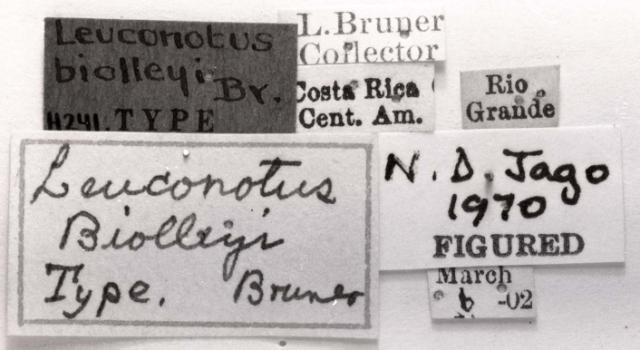 Leuconotus
biolleyi Br.
H241. TYPE
L. Bruner
Collector
Costa Rica
Cent. Am.
Rio
Grande
Leuconotus
Biolleyi
Type. Bruner
N. D. Jago
1970
FIGURED
March
6 -02